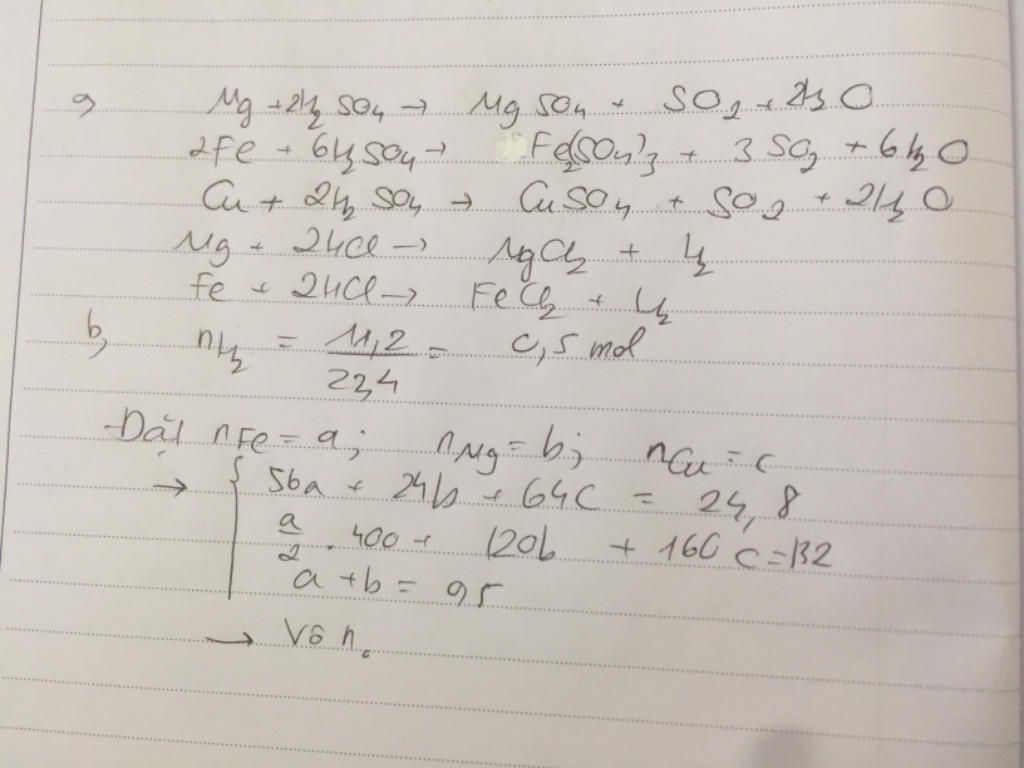 a,
Mg + 2H2SO4 → MgSO4 + SO2 + 2H2O
2Fe + 6H2SO4 → Fe2(SO4)3 + 3SO2 + 6H2O
Cu + 2H2SO4 → CuSO4 + SO2 + 2H2O
Mg + 2HCl → MgCl2 + H2
Fe + 2HCl → FeCl2 + H2
b, nH2 = 11,2/22,4 = 0,5 mol
Đặt nFe = a; nMg = b; nCu = c
→ { 56a + 24b + 64c = 24,8
a/2 . 400 + 120b + 160c = 132
a + b = 0,5
→ Vô n.